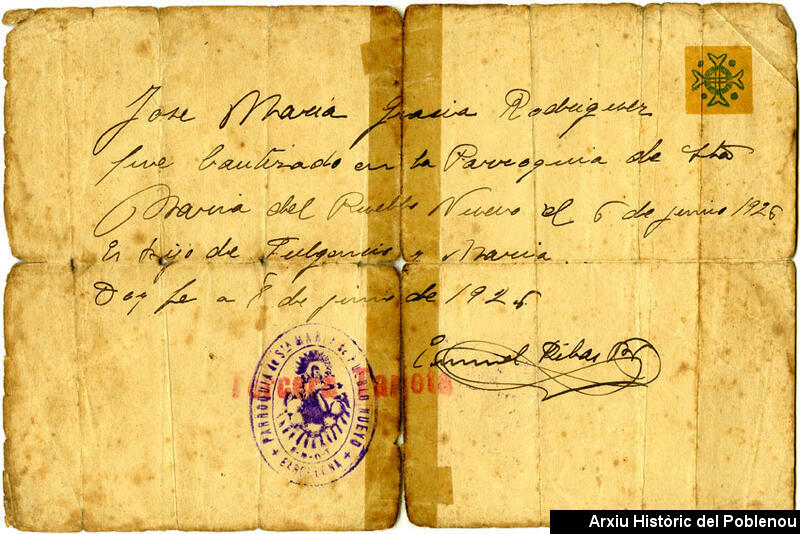 Jose Maria Gracia Rodriguez
fue bautizado en la Parroquia de Sta
Maria del Pueblo Nuevo el 6 de junio 1926
Es hijo de Fulgencio y Maria
Doy fe a 8 de junio de 1926.
Ribas
PARROQUIA DE Sta MARIA DE PUEBLO NUEVO
BARCELONA
Tercera
Arxiu Històric del Poblenou